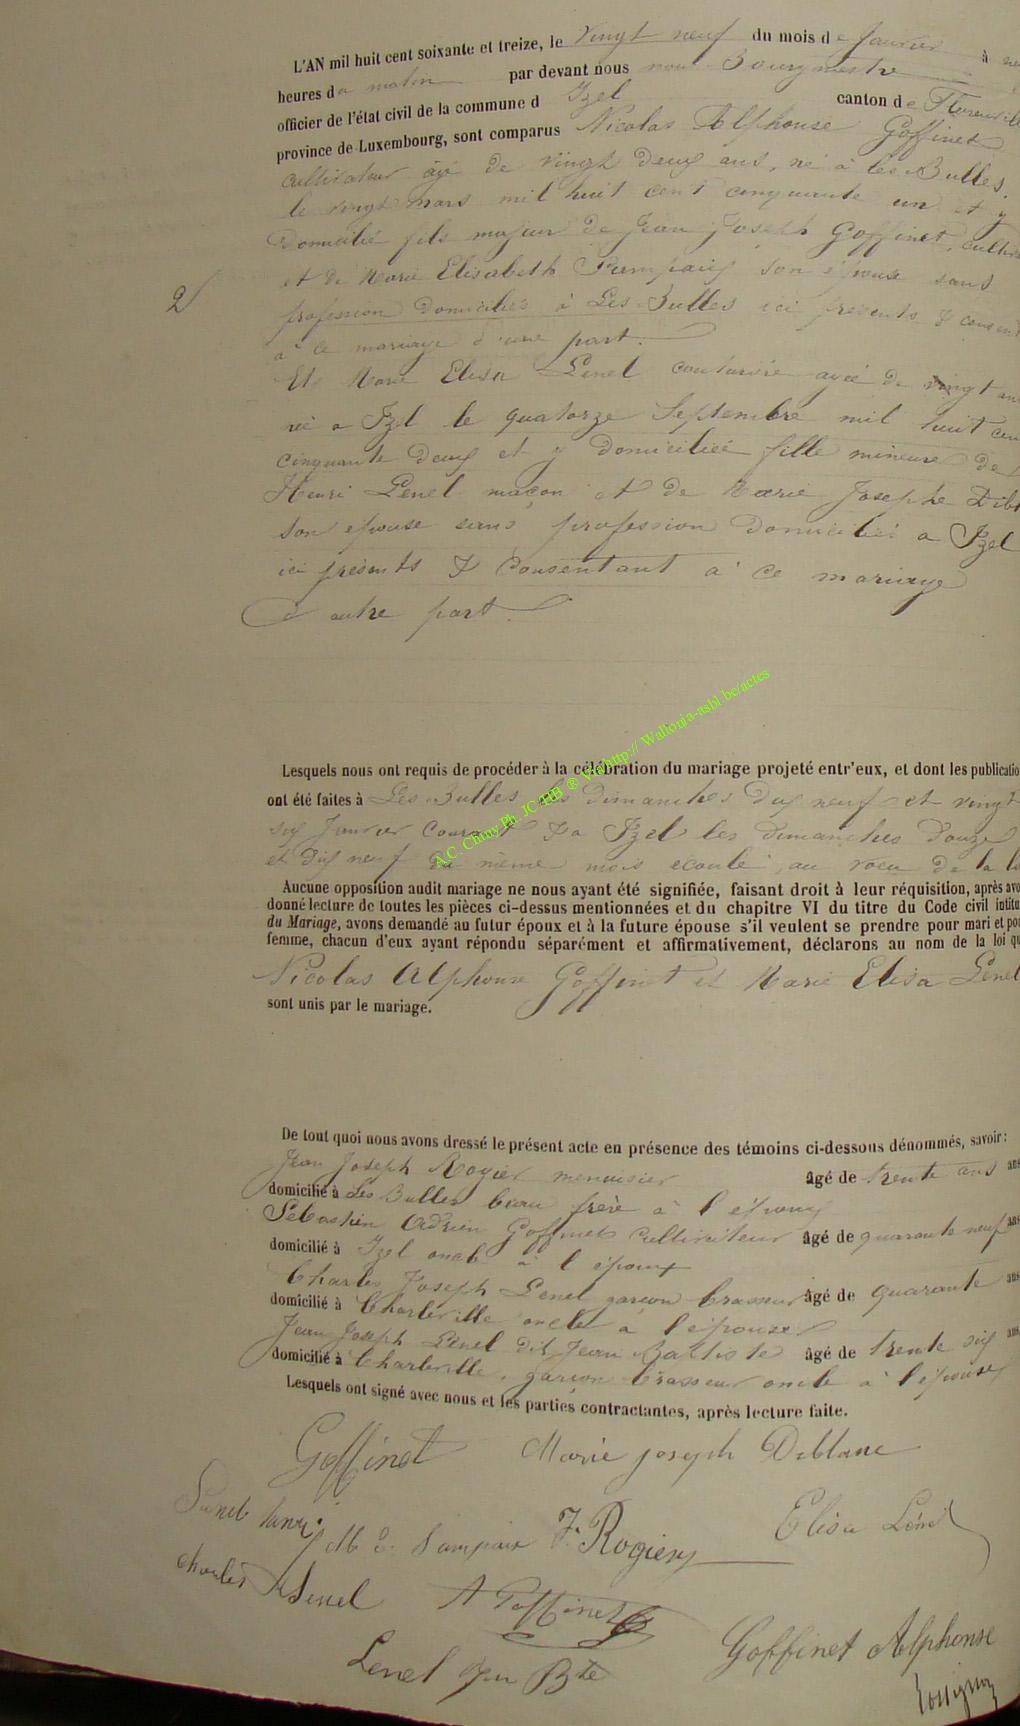 L'AN mil huit cent soixante et treize, le vingt neuf du mois de Janvier à
heures du matin par devant nous nous Bourgmestre
officier de l'état civil de la commune d Izel canton de Florenville
province de Luxembourg, sont comparus Nicolas Alphonse Goffinet
cultivateur âgé de vingt deux ans, né à les Bulles
le vingt mars mil huit cent cinquante un et y
Domicilié fils majeur de Jean Joseph Goffinet, cultiv
et de Marie Elisabeth son épouse sans
2
profession Domiciliés à Les Bulles ici presents & consent
à ce mariage d'une part.
Et Marie Elisa Lenel couturière agée de vingt ans
née a Izel le quatorze Septembre mil huit cen
cinquante deux et y Domiciliée fille mineure de
Henri Lenel maçon et de Marie Josephe Dibl
son epouse sans profession Domicilié a Izel
ici présents & Consentant a ce mariage
D'autre part.
Lesquels nous ont requis de procéder à la célébration du mariage projeté entr'eux, et dont les publicatio
ont été faites à Les Bulles les Dimanches dix neuf et vingt
six Janvier courant & a Izel les Dimanches Douze
et dix neuf du même mois ecoulé, au voeu de la lo
Aucune opposition audit mariage ne nous ayant été signifiée, faisant droit à leur réquisition, après avo
donné lecture de toutes les pièces ci-dessus mentionnées et du chapitre VI du titre du Code civil intitu
du Mariage, avons demandé au futur époux et à la future épouse s'il veulent se prendre pour mari et po
femme, chacun d'eux ayant répondu séparément et affirmativement, déclarons au nom de la loi qu
Nicolas Alphonse Goffinet et Marie Elisa Lenel
sont unis par le mariage.
De tout quoi nous avons dressé le présent acte en présence des témoins ci-dessous dénommés, savoir:
Jean Joseph Rogier menuisier âgé de trente ans ans
domicilié à Les Bulles beau frère à l'époux
Sebastien Adrien Goffinet cultivateur âgé de quarante neuf ans
domicilié à Izel oncle à l'époux
Charles Joseph Lenel garçon brasseur âgé de quarante ans
domicilié à Charleville oncle à l'épouse
Jean Joseph Lenel dit Jean Baltiste âgé de trente six ans
domicilié à Charleville, garçon brasseur oncle à l'épouse
Lesquels ont signé avec nous et les parties contractantes, après lecture faite.
Goffinet Marie Joseph Deblanc
M E Sampaix J. Rogier Elisa Lénel
Charles Lenel A Goffinet
Lenel Jean Bte Goffinet Alphonse
Rossignon
A.C. Chiny Ph. JC HB ® Via http:// Wallonia-asbl.be/actes